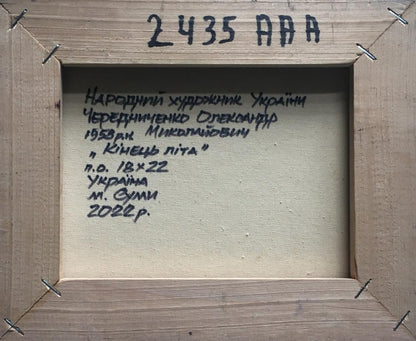 2435 ААА
Народний художник України
Чередниченко Олександр
1958р.н. Миколайович
„Кінець літа"
п.о. 18×22
Україна
м. Суми
2022р.